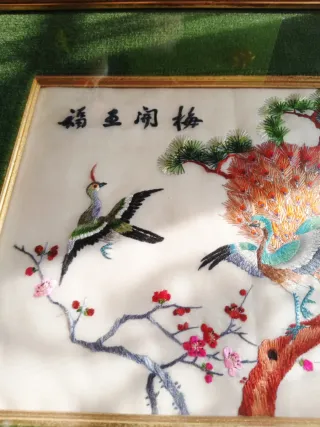 梅開五福